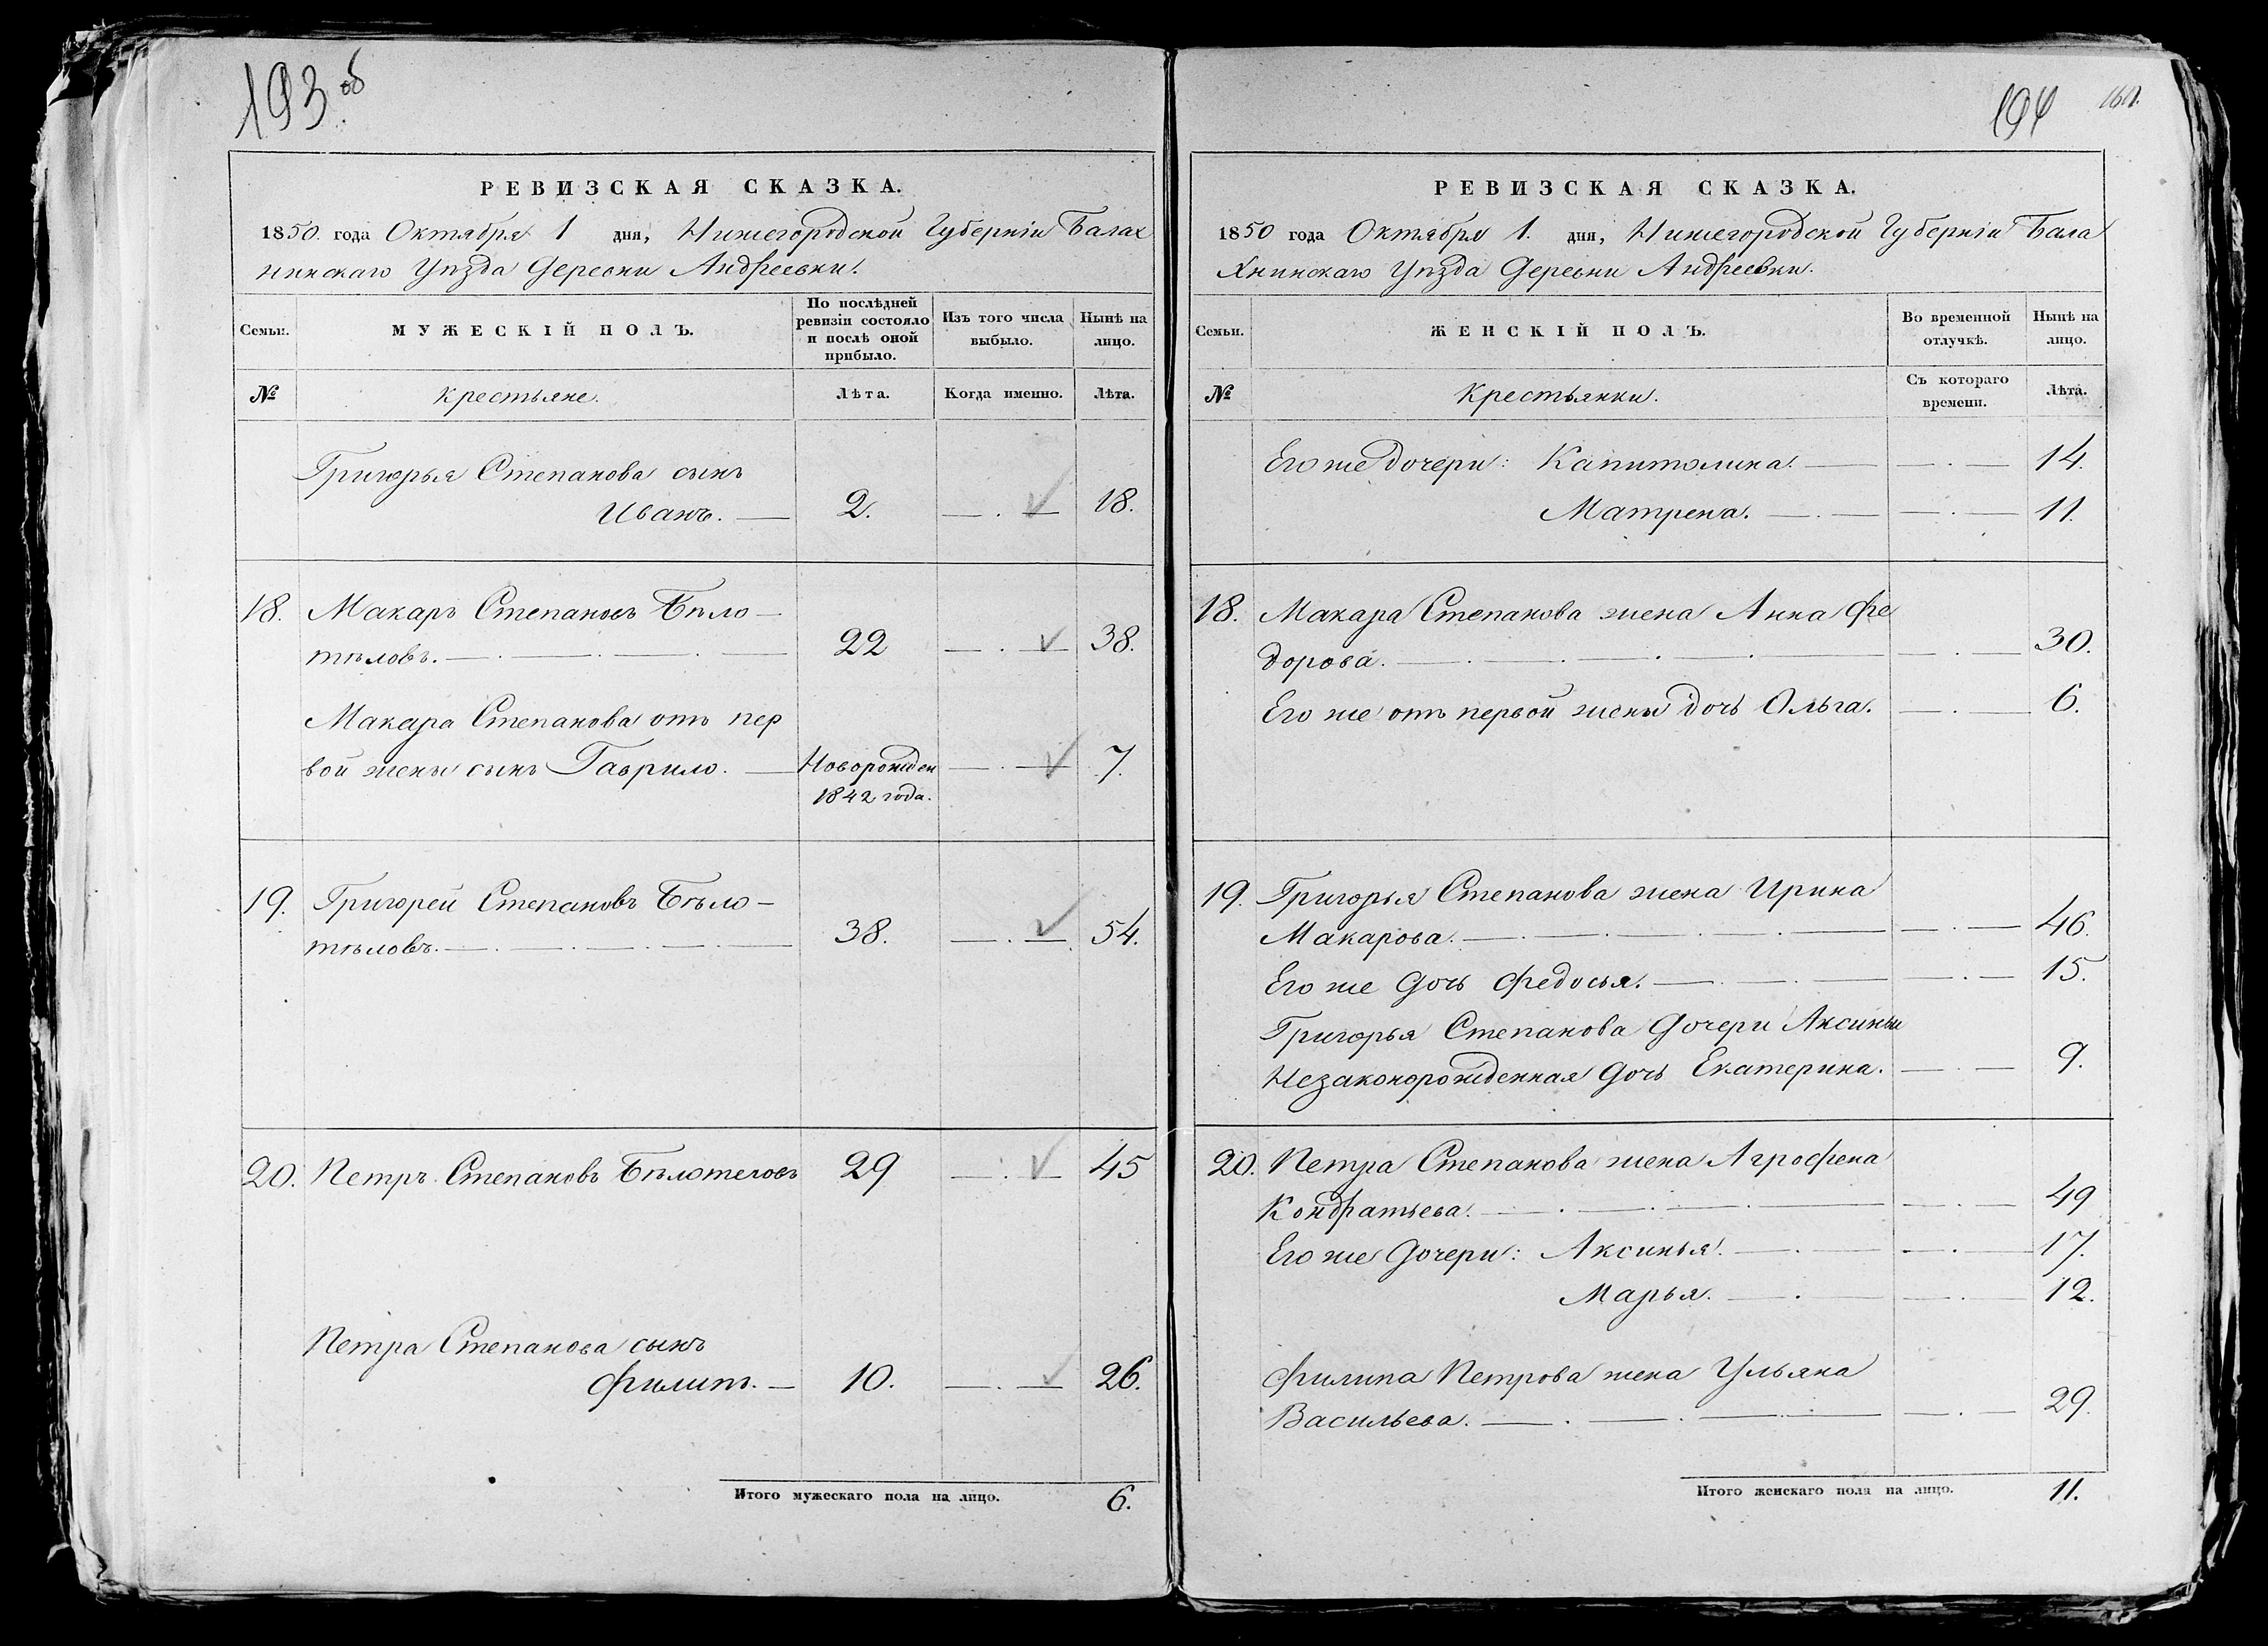 193 об
РЕВИЗСКАЯ СКАЗКА.
1850. года Октября 1 дня, Нижегородской Губерніи Балах
нинскаго Уѣзда Деревни Андреевки.
Семьи.
МУЖЕСКІЙ ПОЛЪ.
По послѣдней
ревизіи состояло
и послѣ оной
прибыло.
Изъ того числа
выбыло.
Нынѣ на
лицо.
№
Крестьяне.
Лѣта.
Когда именно.
Лѣта.
Григорья Степанова сынъ
Иванъ. — 2. — . — 18.
18. Макаръ Степановъ Бѣло-
тѣловъ. — . — . — . — 22 — . — 38.
Макара Степанова отъ пер
вой жены сынъ Гаврило. — Новорожден — . — 7.
1842 года.
19. Григорей Степановъ Бѣло-
тѣловъ. — . — . — . — 38. — . — 54.
20. Петръ Степановъ Бѣлотеловъ 29 — . — 45
Петра Степанова сынъ
Филипъ. — 10. — . — 26.
Итого мужескаго пола на лицо. 6.
194
РЕВИЗСКАЯ СКАЗКА.
1850 года Октября 1. дня, Нижегородской Губерніи Бала
хнинскаго Уѣзда Деревни Андреевки.
Семьи.
ЖЕНСКІЙ ПОЛЪ.
Во временной
отлучкѣ.
Нынѣ на
лицо.
№
Крестьянки.
Съ котораго
времени.
Лѣта.
Его же дочери: Капитолина. — — . — 14.
Матрена. — . — — . — 11.
18. Макара Степанова жена Анна Фе
дорова. — . — . — . — — . — 30.
Его же отъ первой жены дочь Ольга. — . — 6.
19. Григорья Степанова жена Ирина
Макарова. — . — . — . — — . — 46.
Его же дочь Федосья. — . — . — — . — 15.
Григорья Степанова дочери Аксиньи
Незаконорожденная дочь Екатерина. — . — 9.
20. Петра Степанова жена Агрофена
Кондратьева. — . — . — . — — . — 49
Его же дочери: Аксинья. — . — . 17.
Марья. — . — — . — 12.
Филипа Петрова жена Ульяна
Васильева. — . — . — — . — 29.
Итого женскаго пола на лицо. 11.